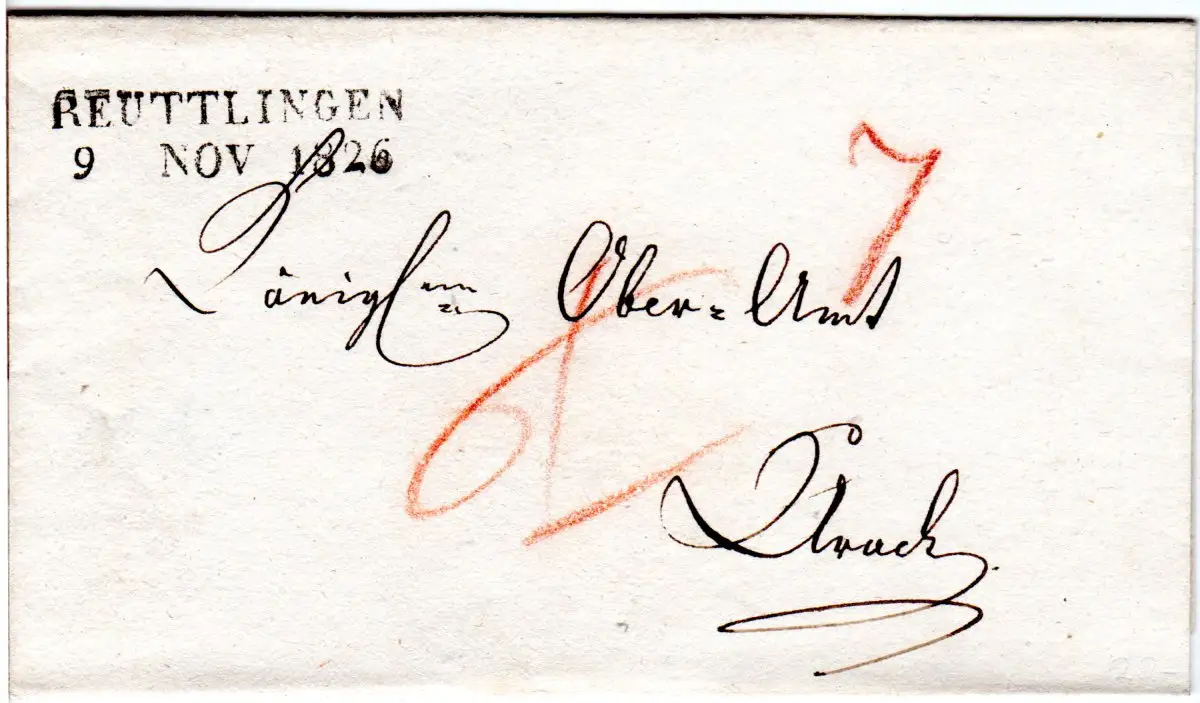 REUTTLINGEN
9 NOV 1826
7
Königl Ober=Amt
Urach